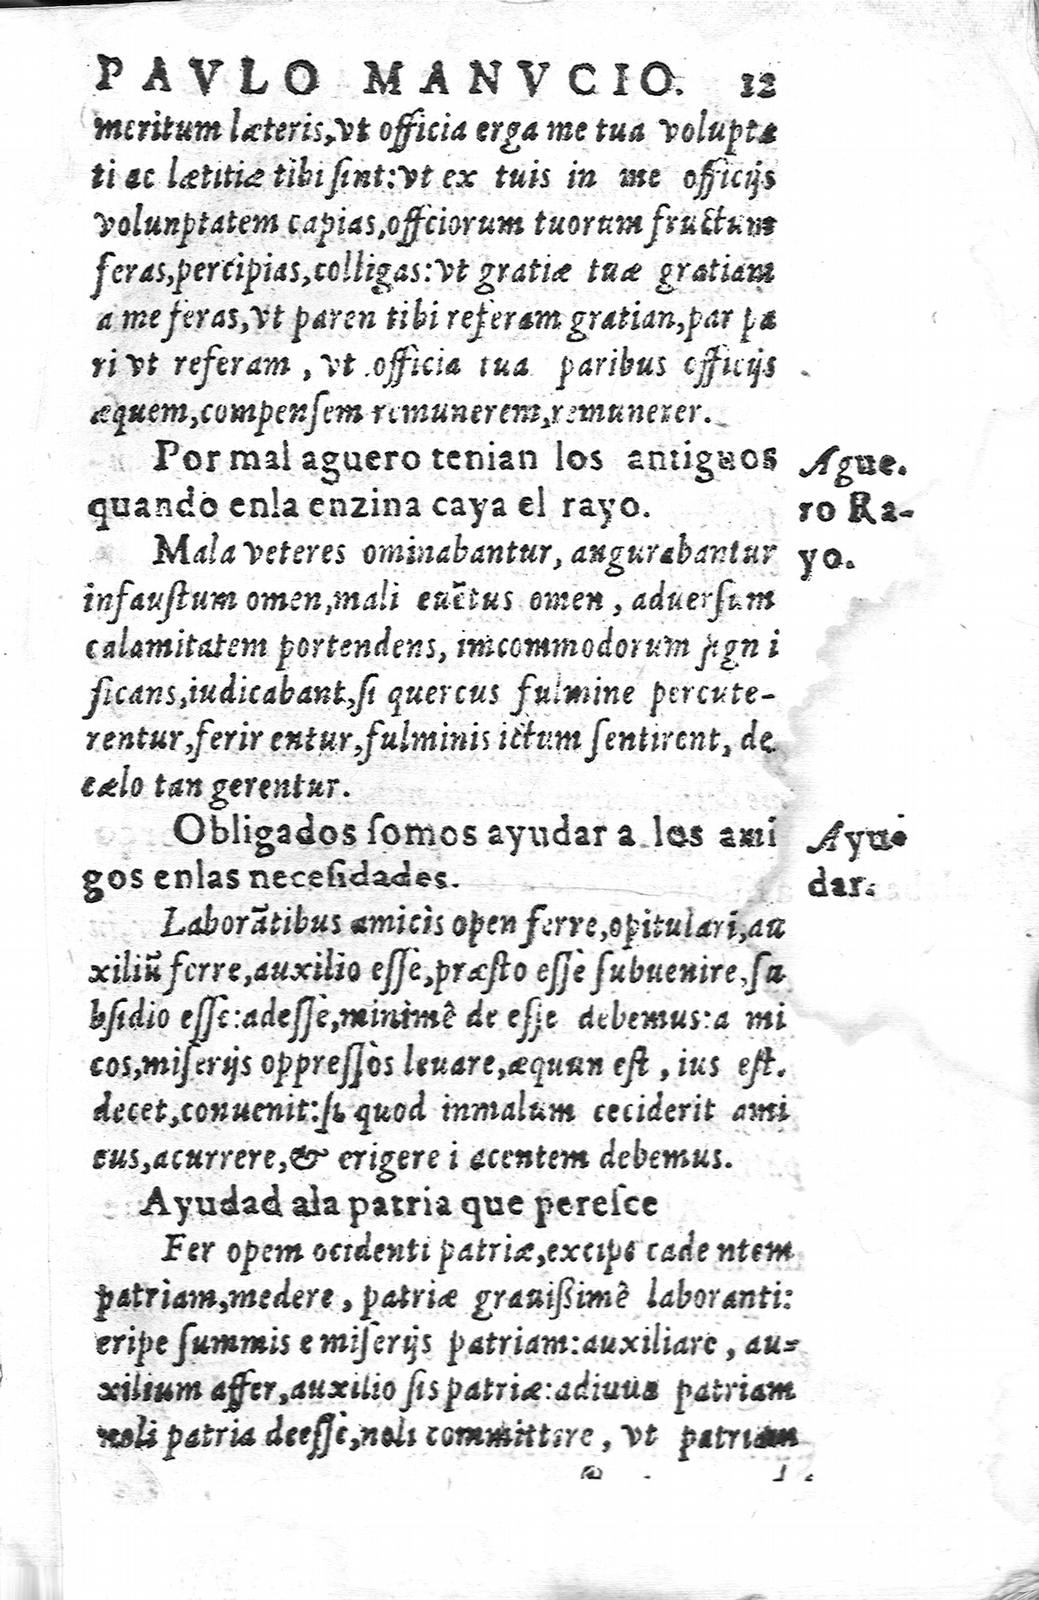 PAVLO MANVCIO. 12
meritum læteris, vt officia erga me tua volupta
ti ac lætitiæ tibi ſint: vt ex tuis in me officijs
volunptatem capias, offciorum tuorum fructum
feras, percipias, colligas: vt gratiæ tuæ gratiam
a me feras, vt paren tibi referam gratian, par pa
ri vt referam, vt officia tua paribus officijs
æquem, compenſem remunerem, remunerer.
Por mal aguero tenian los antiguos
quando enla enzina caya el rayo.
Ague.
ro Ra-
yo.
Mala veteres ominabantur, augurabantur
infauſtum omen, mali euētus omen, aduerſum
calamitatem portendens, imcommodorum ſign i
ficans, iudicabant, ſi quercus fulmine percute-
rentur, ferir entur, fulminis ictum ſentirent, de
cælo tan gerentur.
Obligados ſomos ayudar a los ami
gos enlas neceſidades.
Ayu
dar.
Laborātibus amicis open ferre, opitulari, au
xiliū ferre, auxilio eſſe, præſto eſſe ſubuenire, ſu
bſidio eſſe: adeſſe, minimê de eſſe debemus: a mi
cos, miſerijs oppreſſos leuare, æquun eſt, ius eſt.
decet, conuenit: ſi quod inmalum ceciderit ami
cus, acurrere, & erigere i acentem debemus.
Ayudad ala patria que pereſce
Fer opem ocidenti patriæ, excipe cade ntem
patriam, medere, patriæ grauiſſimê laboranti:
eripe ſummis e miſerijs patriam: auxiliare, au-
xilium affer, auxilio ſis patriæ: adiuua patriam
noli patria deeſſe, noli committere, vt patriam